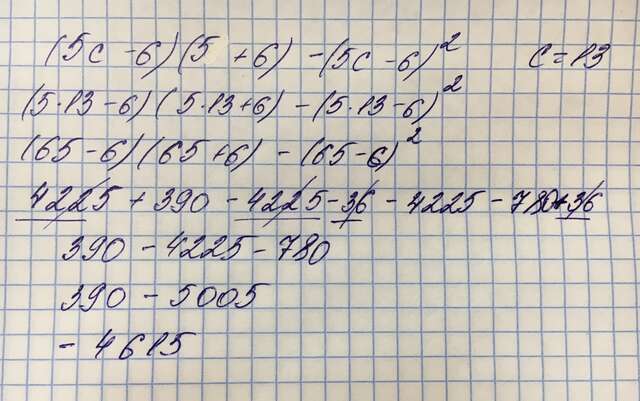 (5c - 6)(5 + 6) - (5c - 6)² c = 13
(5·13 - 6)(5·13 + 6) - (5·13 - 6)²
(65 - 6)(65 + 6) - (65 - 6)²
4225 + 390 - 4225 - 36 - 4225 - 780 + 36
390 - 4225 - 780
390 - 5005
- 4615